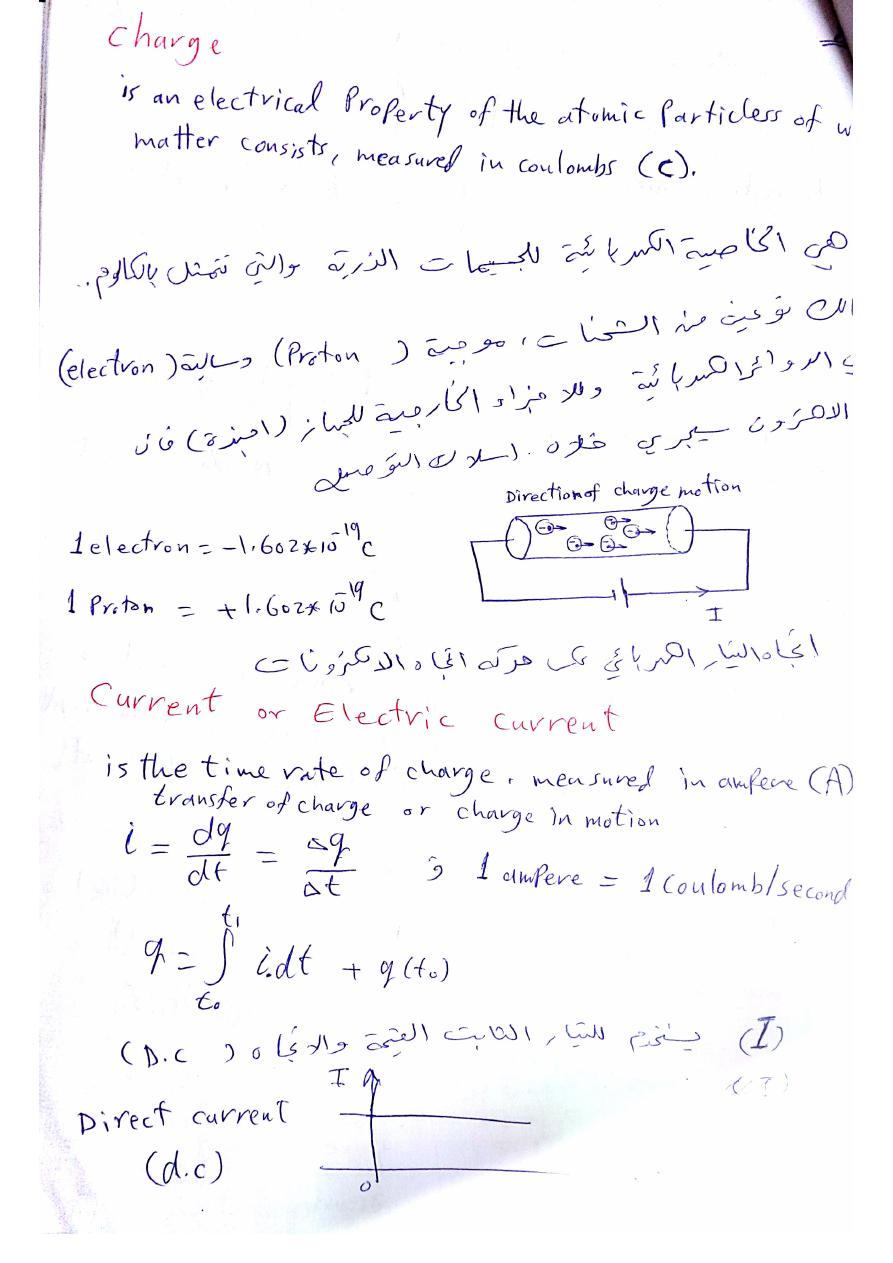 Charge
is an electrical Property of the atomic Particless of w
matter consists, measured in coulombs (C).
هي الخاصية الكهربائية للجسيمات الذرية والتي تتمثل بالكولوم..
الك نوعين من الشحنات، موجبة (Proton) وسالبة (electron)
ي الدوائر الكهربائية وللاجزاء الخارجية للجهاز (اجهزة) فان
الالكترون سيجري خلال اسلاك التوصيل
Direction of charge motion
1 electron = -1.602*10^-19 C
1 Proton = +1.602*10^-19 C
I
اتجاه التيار الكهربائي عكس حركة اتجاه الالكترونات
Current or Electric current
is the time rate of charge, measured in ampere (A)
transfer of charge or charge in motion
i = dq/dt = Δq/Δt , 1 ampere = 1 Coulomb/second
q = ∫ t₀ t₁ i.dt + q(t₀)
(I) يستخدم للتيار الثابت القيمة والاتجاه (D.C)
I
Direct current
(d.c)
0